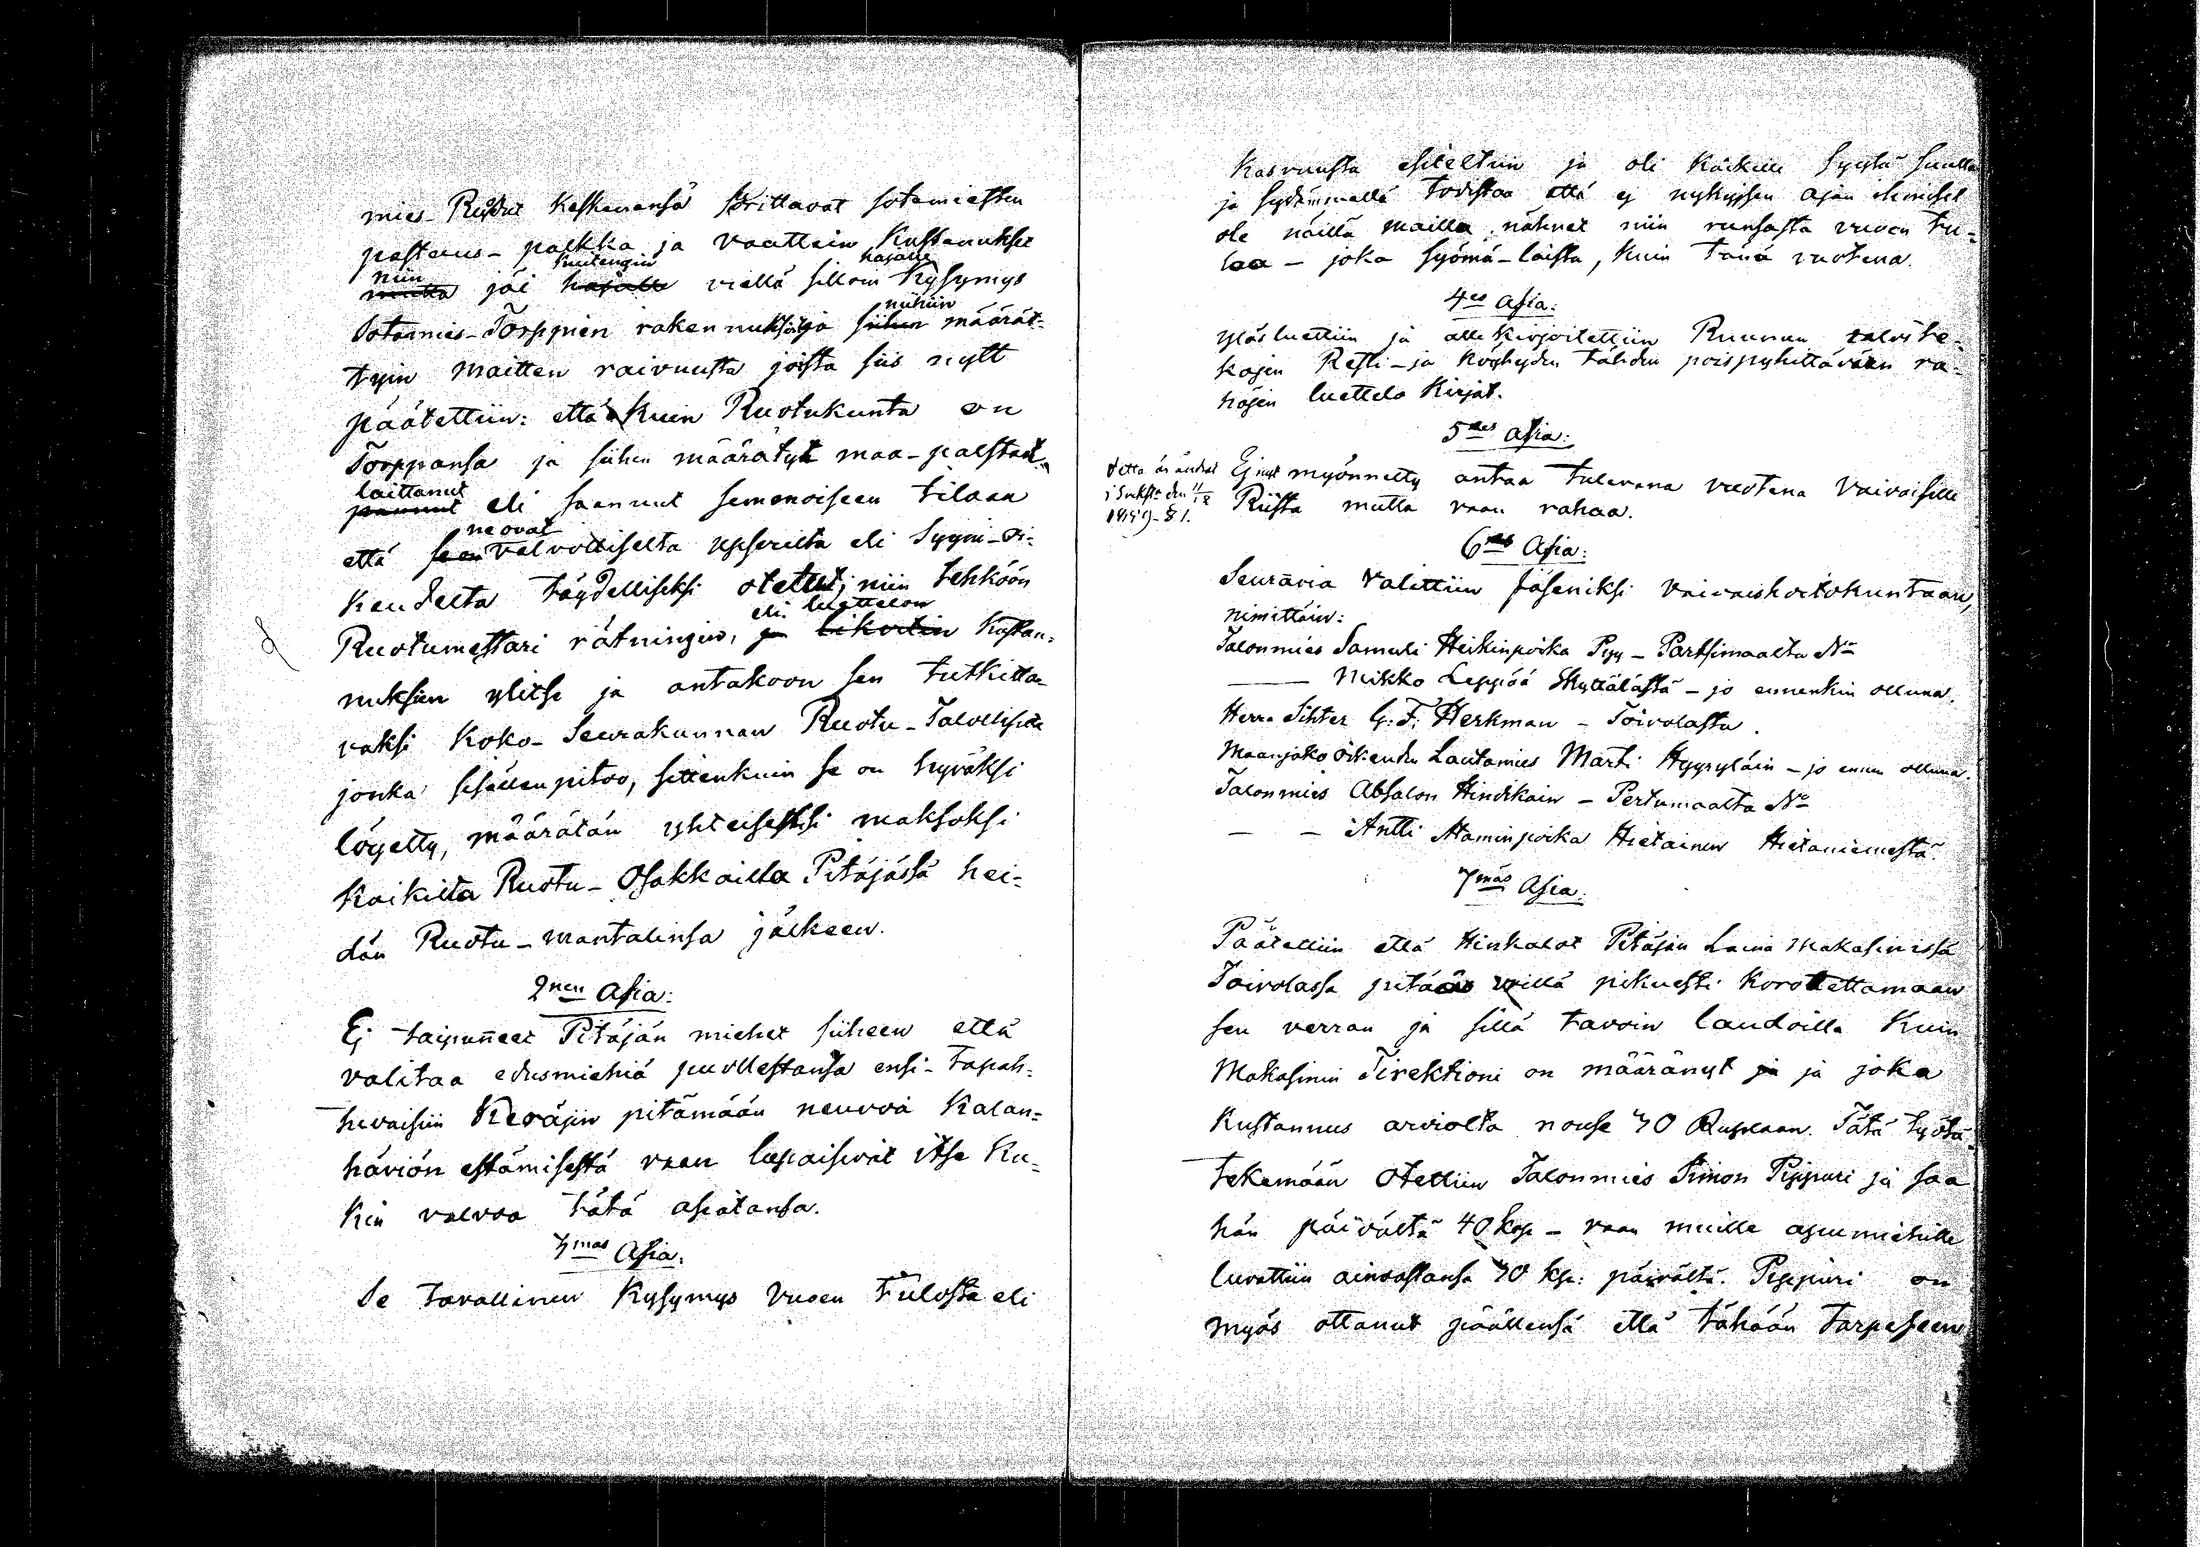 mies-Ruodut keskenänsä sorittavat sotamiesten
pestaus-palkka ja vaattein kustanukset
niin kuitengin hajalle
mutta jäi hajalle vielä silloin kysymys
niihin
Sotamies-Torppien rakennuksista ja siihen määrät-
tyin maitten raivuusta joista siis nytt
päätettiin: että kuin Ruotukunta on
Torppansa ja siihen määrätyt maa-palstat
laittanut
pannut eli saanut semmoiseen tilaan
ne ovat
että se on velvolliselta Upserilta eli Syyni-oi-
keudelta täydelliseksi otetut; niin tehköön
eli luettelon
Ruotumestari rätningin, ja likvitin kustan-
nuksien ylitse ja antakoon sen tutkitta-
vaksi koko-Seurakunnan Ruotu-Talollisille
jonka sisällenpitoo, sittenkuin se on hyväksi
löyetty, määrätän yhteiseksi maksoksi
kaikilta Ruotu-Osakkailta Pitäjässä hei-
dän Ruotu-mantalinsa jälkeen.
2nen Asia:
Ej taipuneet Pitäjän miehet siiheen että
valitaa edusmiehiä puollestansa ensi-tapah-
tuvaisiin Keräjiin pitämään neuvoa kalan-
häviön estämisestä vaan lupaisivat itse ku-
kin valvoa tätä asiatansa.
3mas Asia.
Se tavallinen kysymys vuoen tulosta eli
Kasvuusta esiteltiin ja oli kaikille syystä suulla
ja sydämmellä todistaa että ej nykyisen ajan ihmiset
ole näillä mailla nähnet niin runsasta vuoen tu-
loa - joka syömä-laista, kuin tänä vuotena.
4es Asia:
Ylösluettiin ja allekirjoitettiin Ruunun
kojen Resti- ja köyhyden tähden poispyhittävään ra-
hojen luettelo kirjat.
5des Asia:
Detta är ändrat
Ej nyt myönnetty antaa tulevana vuotena Vaivaisille
Riista mutta vaan rahaa.
6des Asia:
Seuravia valittiin Jäseniksi vaivaishoitokuntaan,
nimittäin:
Talonmies Samuli Heikinpoika Pyy - Partsimaalta No
— Mikko Leppöö Skyttälästä - jo ennenkin olluna.
Herra Sihter G. F. Herkman - Toivolasta.
Maanjako oikeuden Lautamies Martti Hyyryläin - jo ennen olluna.
Talonmies Absalon Hindikain - Pertumaalta No
— — Antti Ataminpoika Hietainen Hietaniemestä.
7mäs Asia.
Päätettiin että Hinkalot Pitäjän Laina Makasinissa
Toivolassa pitää vielä pikuesti korotettamaan
sen verran ja sillä tavoin laudoilla kuin
Makasinin Tirektioni on määränyt ja ja joka
kustannus arviolta nouse 30 Ruplaan. Tätä työtä
tekemään otettiin Talonmies Simon Pippuri ja saa
hän päivältä 40 kop - vaan muille apumiehille
luvattiin ainoastansa 30 kp: päivältä. Pippuri on
myös ottanut päällensä että tähään tarpeseen